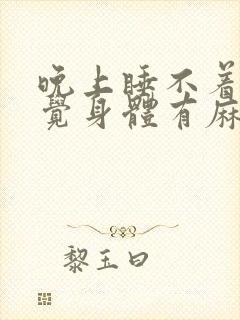 晚上睡不着
覺身體有麻
黎玉曰